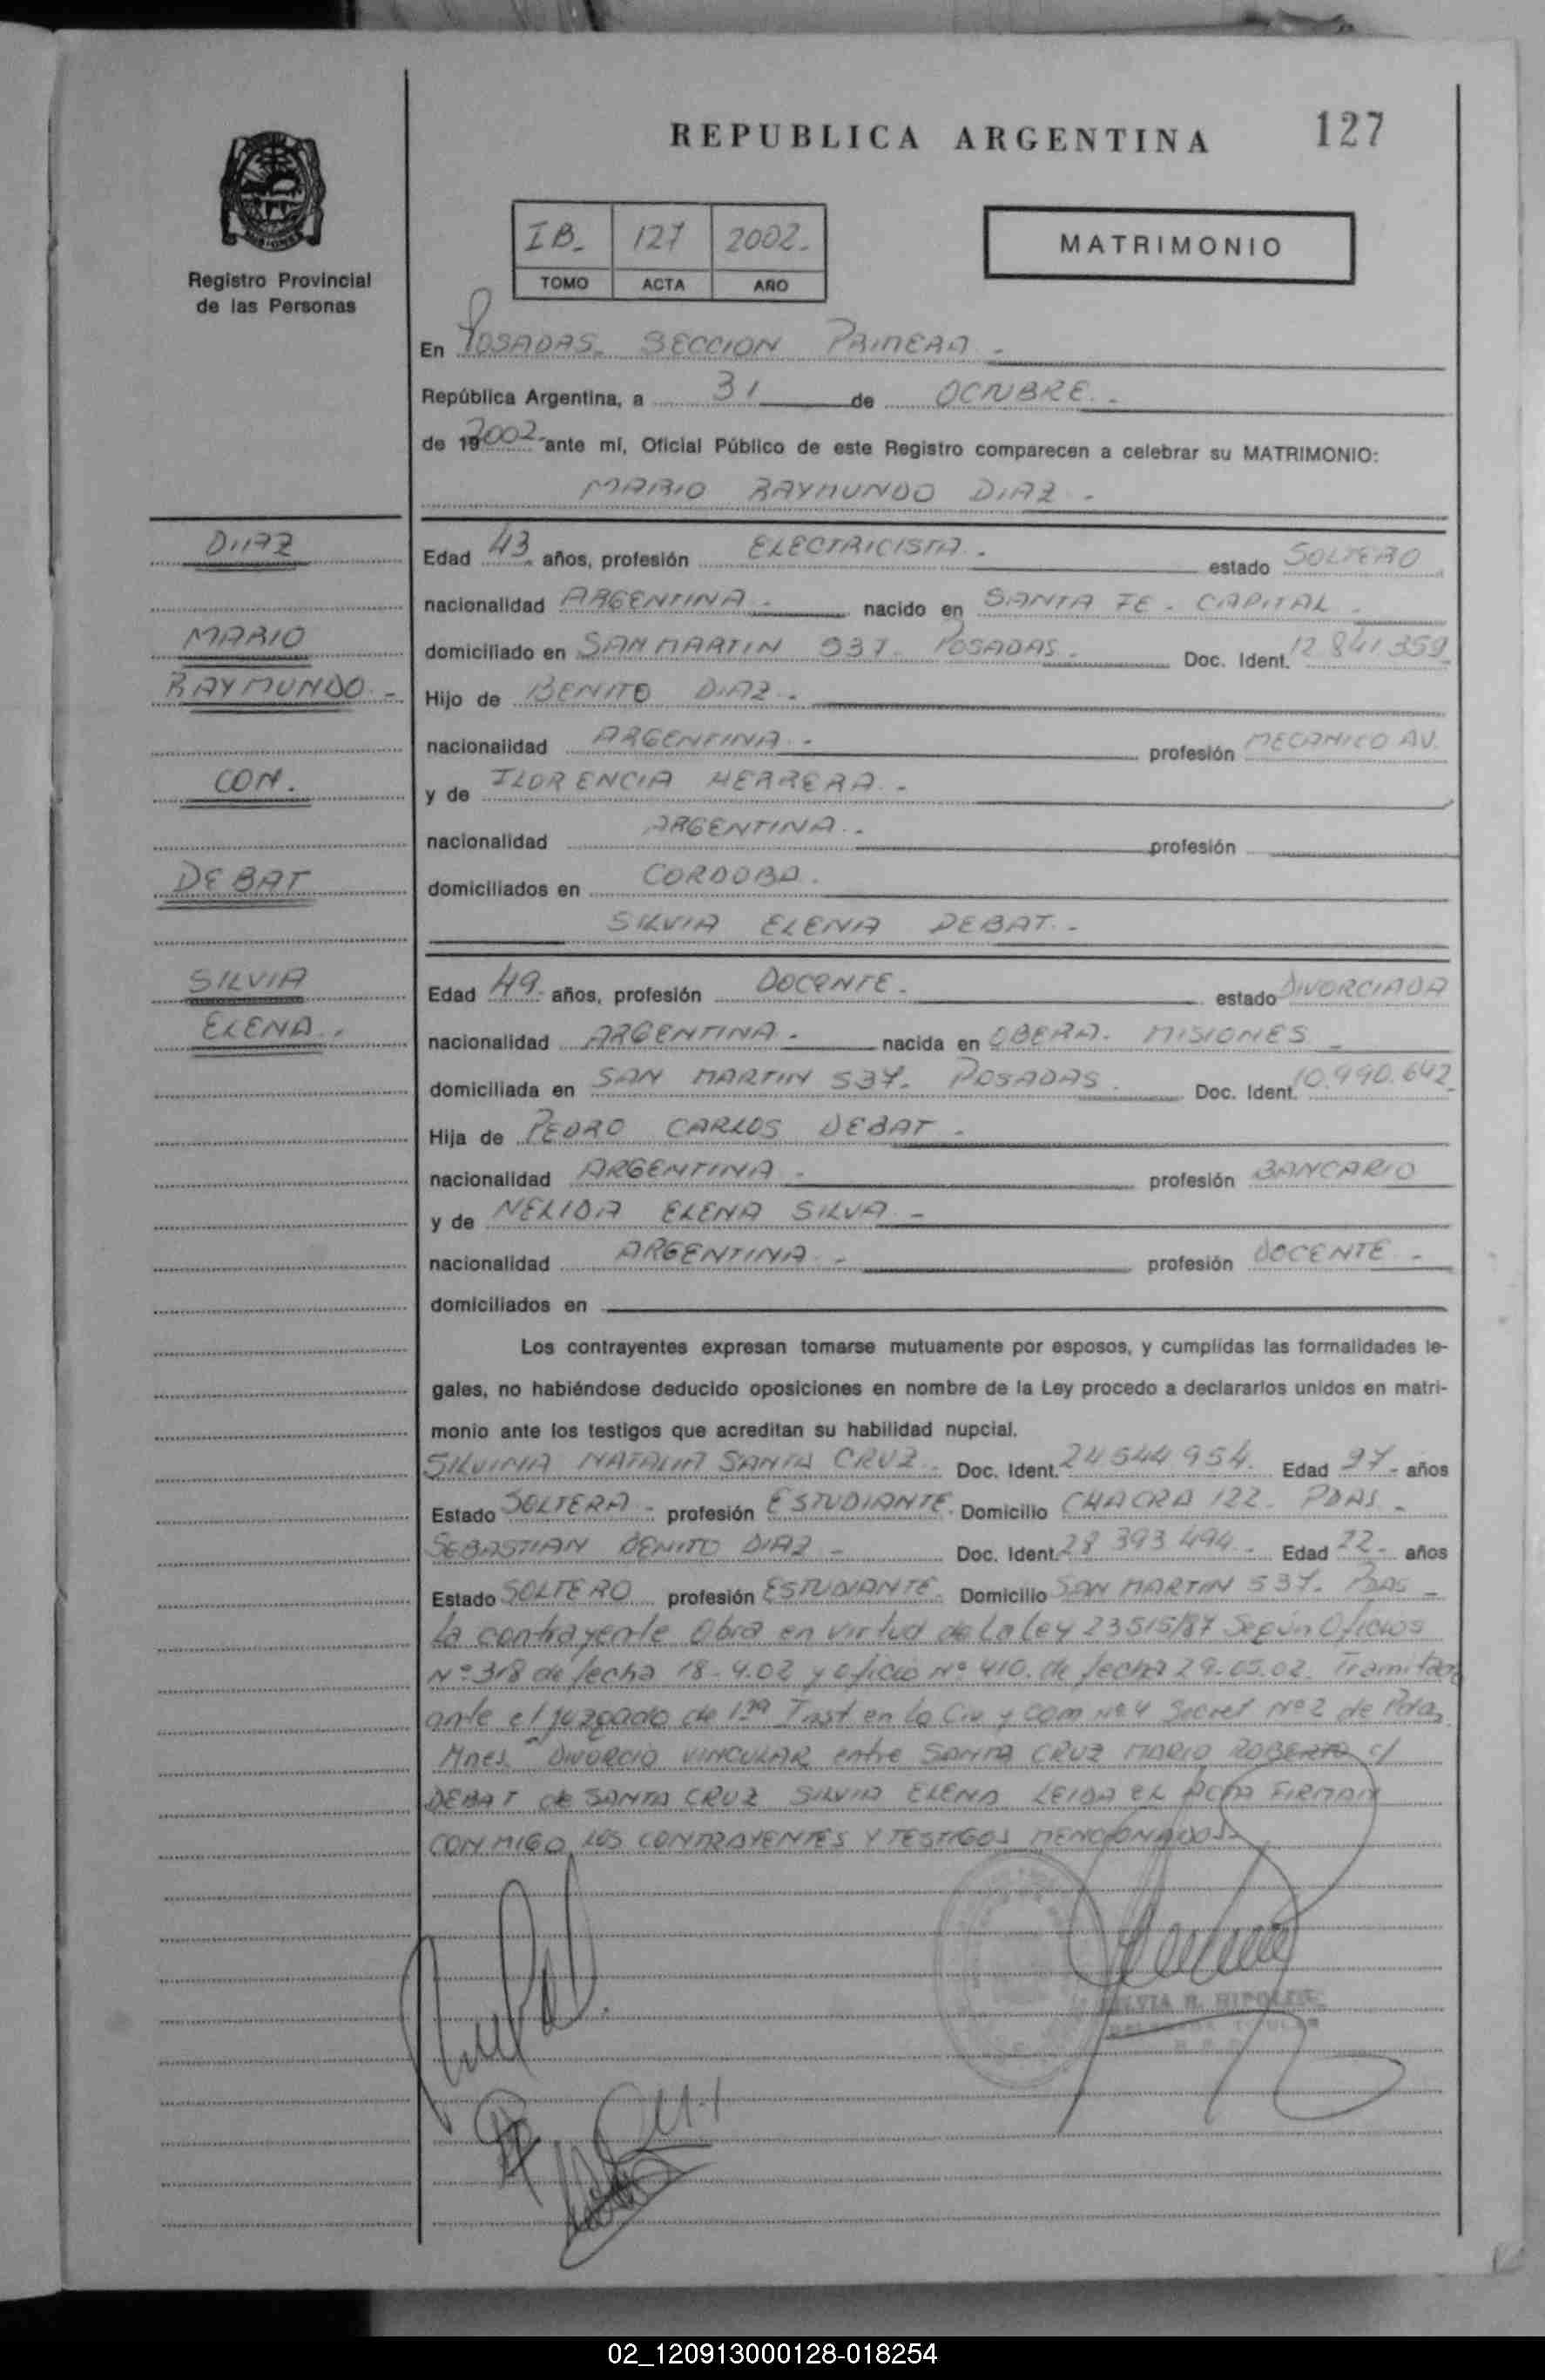 REPUBLICA ARGENTINA
127
Registro Provincial
de las Personas
IB- 127 2002-
TOMO ACTA AÑO
MATRIMONIO
En POSADAS- SECCION PRIMERA -
República Argentina, a 31 de OCTUBRE. -
de 19 2002- ante mí, Oficial Público de este Registro comparecen a celebrar su MATRIMONIO:
MARIO RAYMUNDO DIAZ -
DIAZ
Edad 43 años, profesión ELECTRICISTA - estado SOLTERO
nacionalidad ARGENTINA - nacido en SANTA FE - CAPITAL -
MARIO
domiciliado en SAN MARTIN 537- POSADAS - Doc. Ident. 12 841 359
RAYMUNDO -
Hijo de BENITO DIAZ -
nacionalidad ARGENTINA - profesión MECANICO AV.
CON.
y de ILDRENCIA HERRERA -
nacionalidad ARGENTINA - profesión
DEBAT
domiciliados en CORDOBA -
SILVIA ELENA DEBAT. -
SILVIA
Edad 49 años, profesión DOCENTE - estado DIVORCIADA
ELENA
nacionalidad ARGENTINA - nacida en OBERA- MISIONES -
domiciliada en SAN MARTIN 537- POSADAS - Doc. Ident. 10.990.642
Hija de PEDRO CARLOS DEBAT -
nacionalidad ARGENTINA - profesión BANCARIO
y de NELIDA ELENA SILVA -
nacionalidad ARGENTINA - profesión DOCENTE -
domiciliados en
Los contrayentes expresan tomarse mutuamente por esposos, y cumplidas las formalidades le-
gales, no habiéndose deducido oposiciones en nombre de la Ley procedo a declararlos unidos en matri-
monio ante los testigos que acreditan su habilidad nupcial.
SILVINA NATALIA SANTA CRUZ - Doc. Ident. 24 544 954 Edad 27- años
Estado SOLTERA - profesión ESTUDIANTE- Domicilio CHACRA 122- PDAS -
SEBASTIAN BENITO DIAZ - Doc. Ident. 28 393 494- Edad 22- años
Estado SOLTERO profesión ESTUDIANTE- Domicilio SAN MARTIN 537- PDAS -
La contrayente Obra en virtud de La Ley 23515/87 Según Oficios
Nº 318 de fecha 18-4.02 y oficio Nº 410. de fecha 29-05.02. Tramitado
ante el juzgado de 1ra Inst en Lo Civ y Com Nº 4 Secret Nº 2 de Pdas
Mnes "DIVORCIO VINCULAR entre SANTA CRUZ MARIO ROBERTO c/
DEBAT de SANTA CRUZ SILVIA ELENA LEIDA EL ACTA FIRMAN
CONMIGO LOS CONTRAYENTES Y TESTIGOS MENCIONADOS-
SILVIA R. HIPOLITO
02_120913000128-018254